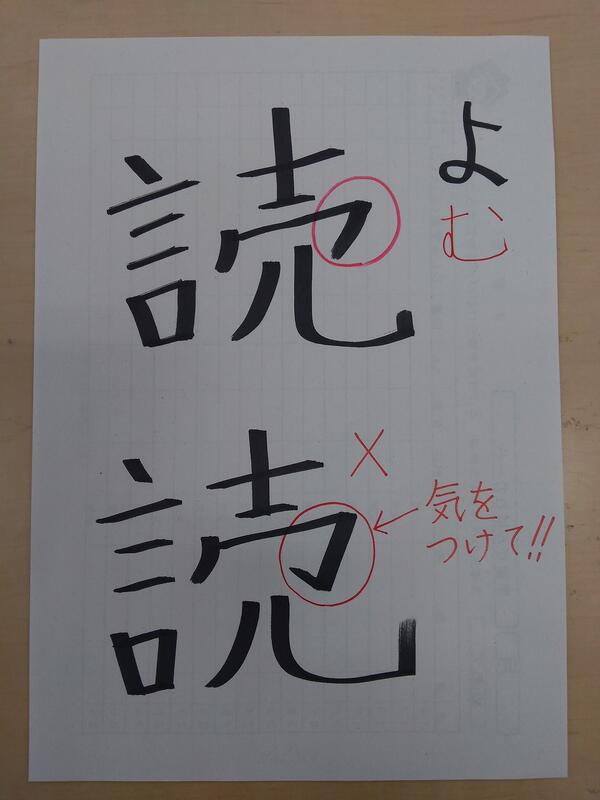 読
よむ
読
×
気を
つけて!!